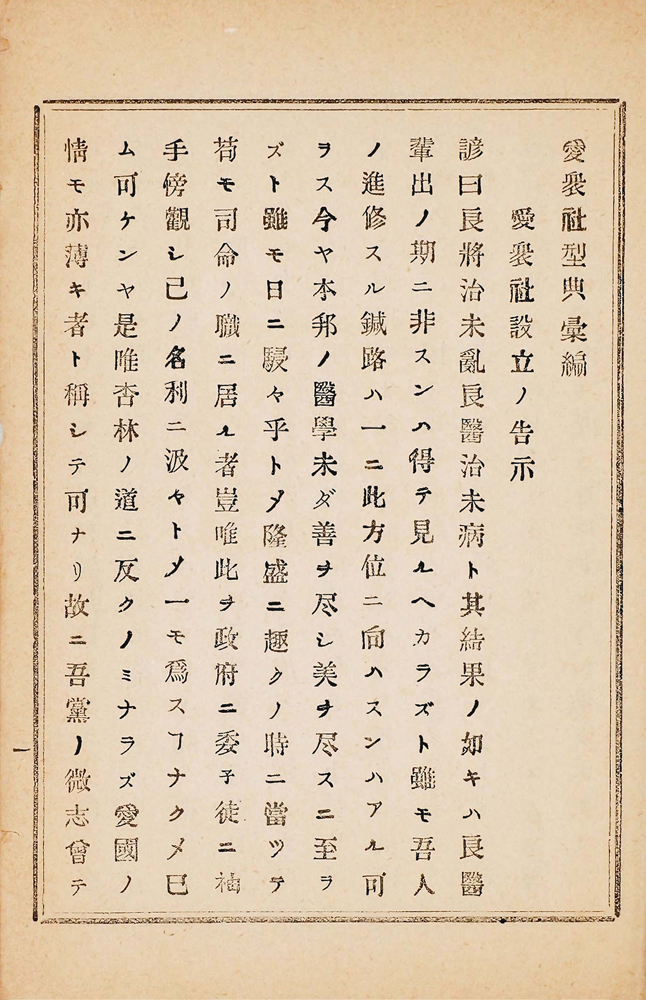 愛衆社型典彙編
愛衆社設立ノ告示
諺曰良將治未亂良醫治未病ト其結果ノ如キハ良醫
輩出ノ期ニ非スンハ得テ見ルヘカラズト雖モ吾人
ノ進修スル鍼路ハ一ニ此方位ニ向ハスンハアル可
ヲス今ヤ本邦ノ醫學未ダ善ヲ尽シ美ヲ尽スニ至ラ
ズト雖モ日ニ駸々乎トメ隆盛ニ趣クノ時ニ當ツテ
苟モ司命ノ職ニ居ル者豈唯此ヲ政府ニ委子徒ニ袖
手傍觀シ己ノ名利ニ汲々トメ一モ爲スヿナクメ巳
ム可ケンヤ是唯杏林ノ道ニ反クノミナラズ愛國ノ
情モ亦薄キ者ト稱シテ可ナリ故ニ吾黨ノ微志曾テ
一